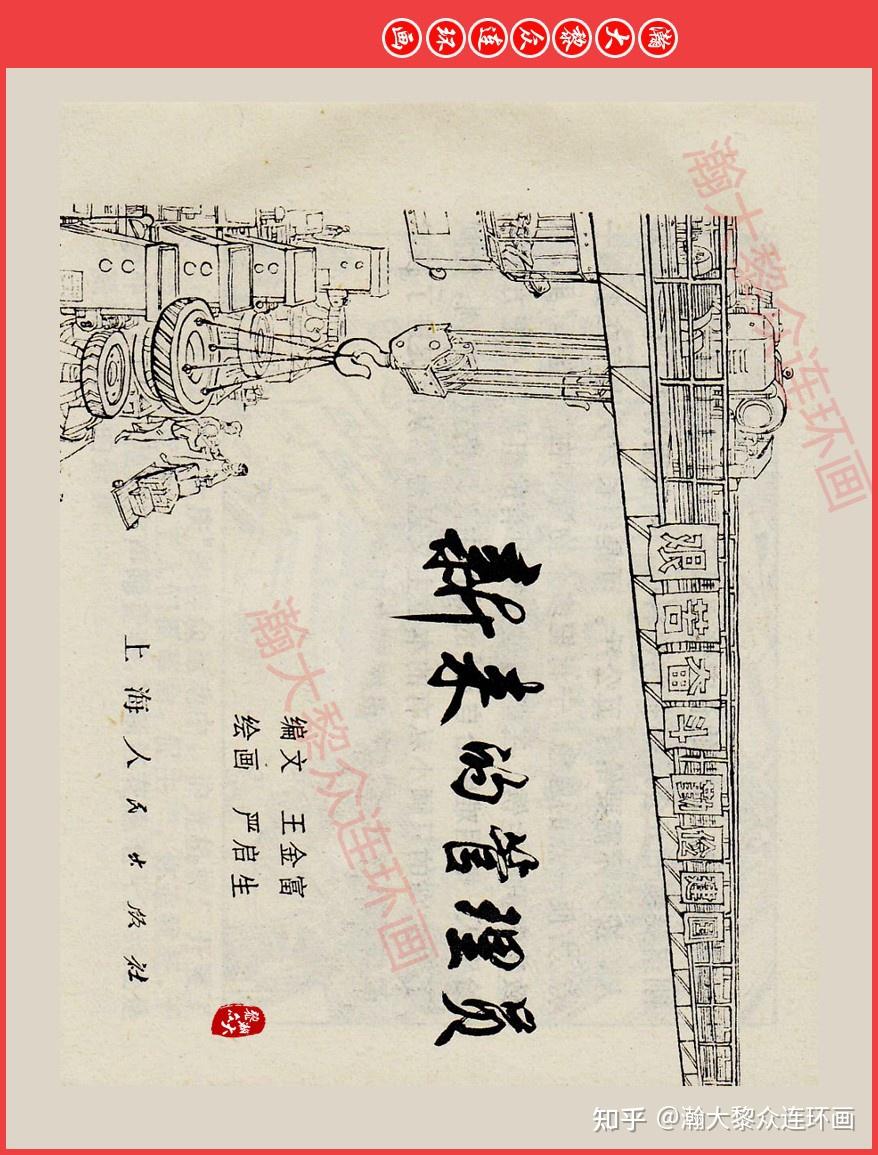 瀚大黎众连环画
艰苦奋斗 勤俭建国
新来的管理员
编文 王金富
绘画 严启生
上海人民出版社
瀚大黎众
瀚大黎众连环画
瀚大黎众连环画
知乎 @瀚大黎众连环画